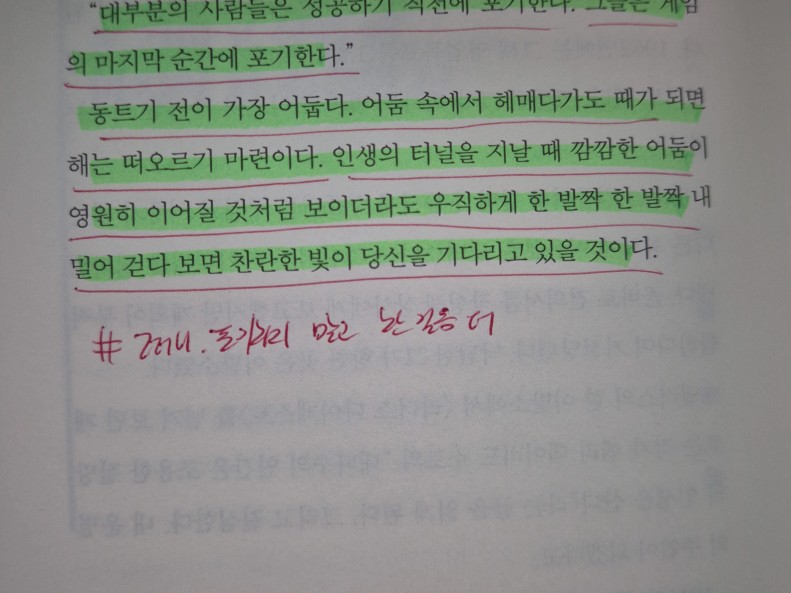 “대부분의 사람들은 성공하기 직전에 포기한다. 그들은 게임
의 마지막 순간에 포기한다.”
동트기 전이 가장 어둡다. 어둠 속에서 헤매다가도 때가 되면
해는 떠오르기 마련이다. 인생의 터널을 지날 때 깜깜한 어둠이
영원히 이어질 것처럼 보이더라도 우직하게 한 발짝 한 발짝 내
밀어 걷다 보면 찬란한 빛이 당신을 기다리고 있을 것이다.
# 포기하지 말고 한 걸음 더